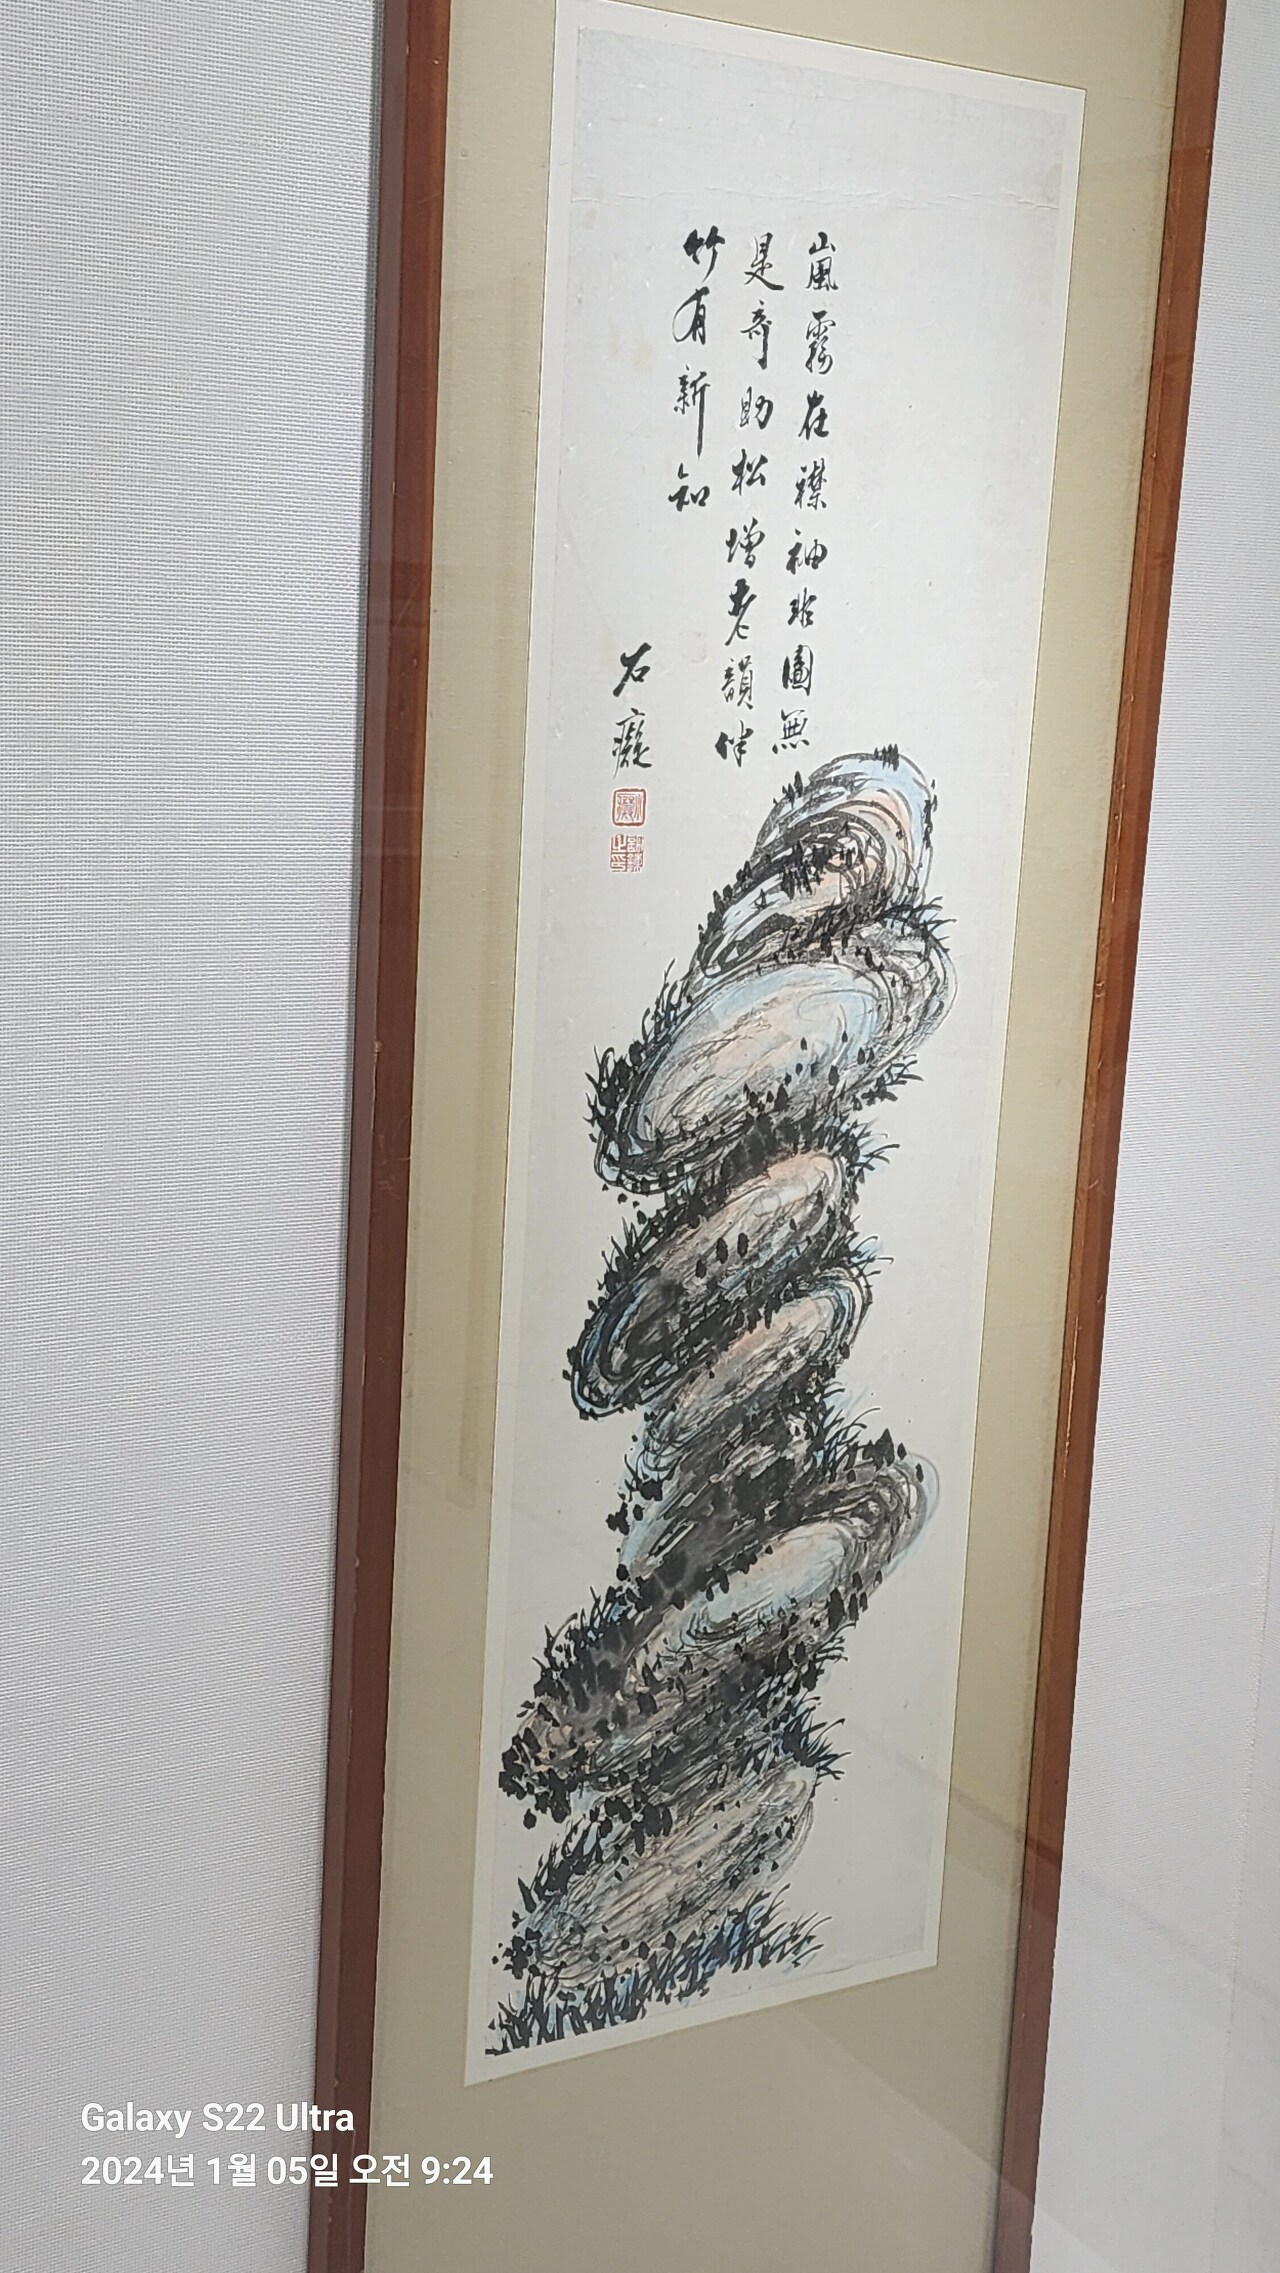 嵐霧在襟袖
是奇助松增老韻伴
竹有新知
石癡
Galaxy S22 Ultra
2024년 1월 05일 오전 9:24